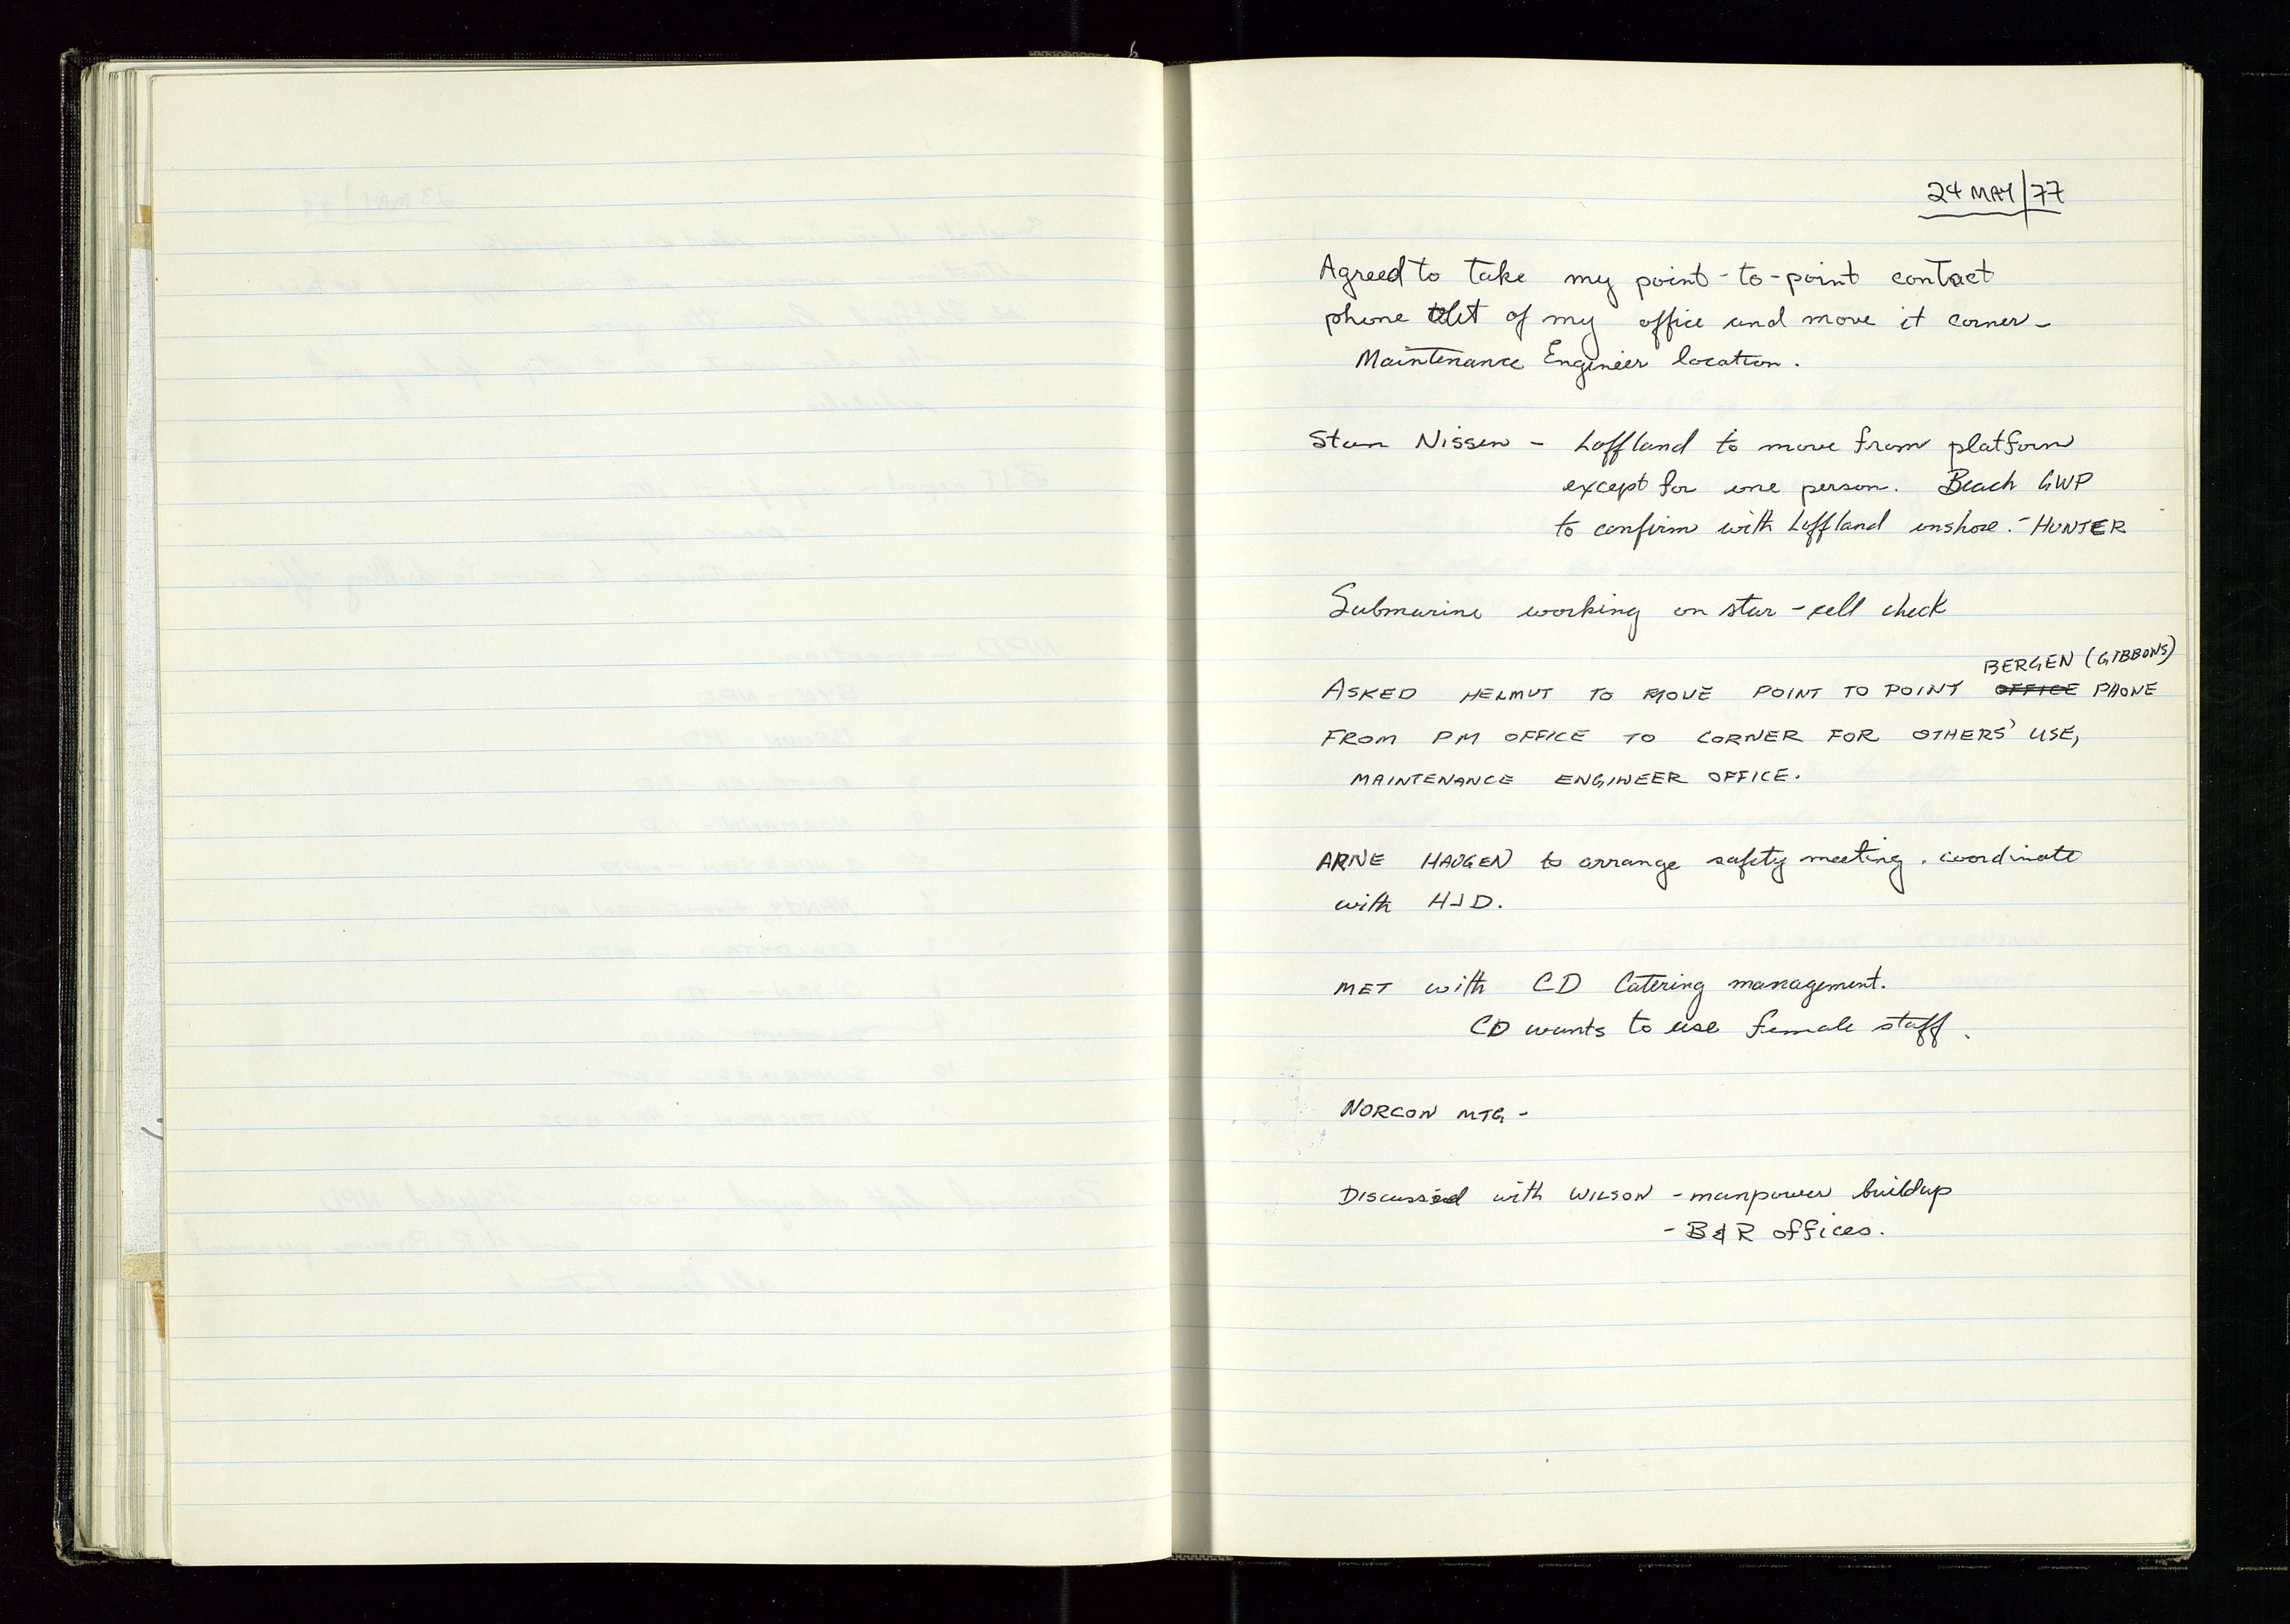 24 MAY/77
Agreed to take my point-to-point contact
phone out of my office and move it corner-
Maintenance Engineer location.
Stan Nissen - Loffland to move from platform
except for one person. Beach GWP
to confirm with Loffland onshore. - HUNTER
Submarine working on star-cell check
BERGEN (GIBBONS)
ASKED HELMUT TO MOVE POINT TO POINT OFFICE PHONE
FROM PM OFFICE TO CORNER FOR OTHERS' USE,
MAINTENANCE ENGINEER OFFICE.
ARNE HAUGEN to arrange safety meeting. coordinate
with HJD.
MET with CD Catering management.
CD wants to use female staff.
NORCON MTG -
Discussed with WILSON - manpower buildup
- B&R offices.